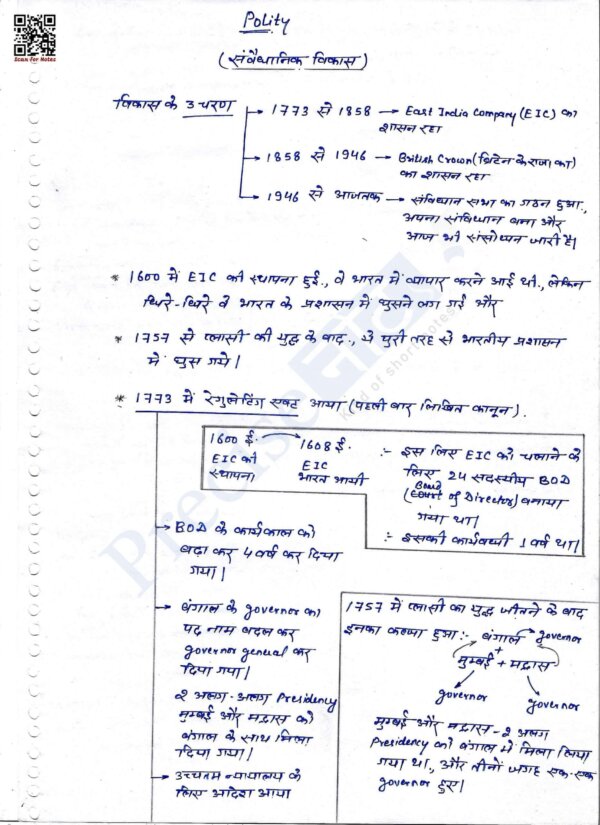 Scan For Notes
Polity
(संवैधानिक विकास)
विकास के 3 चरण
1773 से 1858 → East India Company (EIC) का
शासन रहा
1858 से 1946 → British Crown (ब्रिटेन के राजा का)
का शासन रहा
1946 से आजतक → संविधान सभा का गठन हुआ.,
अपना संविधान बना और
आज भी संसोधन जारी है।
* 1600 में EIC की स्थापना हुई., वे भारत में व्यापार करने आई थी., लेकिन
धिरे-धिरे वे भारत के प्रशासन में घुसने लग गई और
* 1757 से प्लासी की युद्ध के बाद., ये पुरी तरह से भारतीय प्रशासन
में घुस गये।
* 1773 में रेगुलेटिंग एक्ट आया (पहली बार लिखित कानून).
1600 ई. → 1608 ई.
EIC की EIC
स्थापना भारत आयी
:- इस लिए EIC को चलाने के
लिए 24 सदस्यीय BOD
Board
(Court of Director) बनाया
गया था।
:- इसकी कार्यवधी 1 वर्ष था।
→ BOD के कार्यकाल को
बढ़ा कर 4 वर्ष कर दिया
गया।
→ बंगाल के governor का
पद नाम बदल कर
governor general कर
दिया गया।
2 अलग-अलग Presidency
मुम्बई और मद्रास को
बंगाल के साथ मिला
दिया गया।
→ उच्चतम न्यायालय के
लिए आदेश आया
1757 में प्लासी का युद्ध जीतने के बाद
इनका कब्जा हुआ:- बंगाल → governor
+
मुम्बई + मद्रास
governor governor
मुम्बई और मद्रास - 2 अलग
Presidency को बंगाल में मिला लिया
गया था., और तीनों जगह एक-एक
governor हुए।
Precise
Kind of short notes